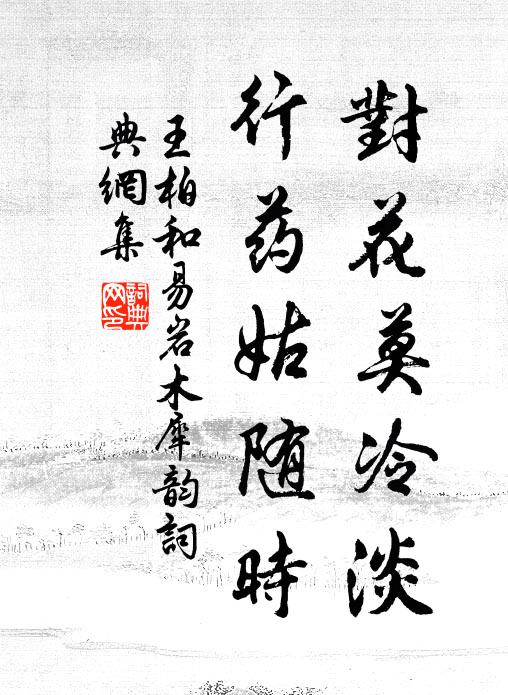 對花莫冷淡
行药姑随時
王柏和易岩木犀韵詞
典網集
詞典網印